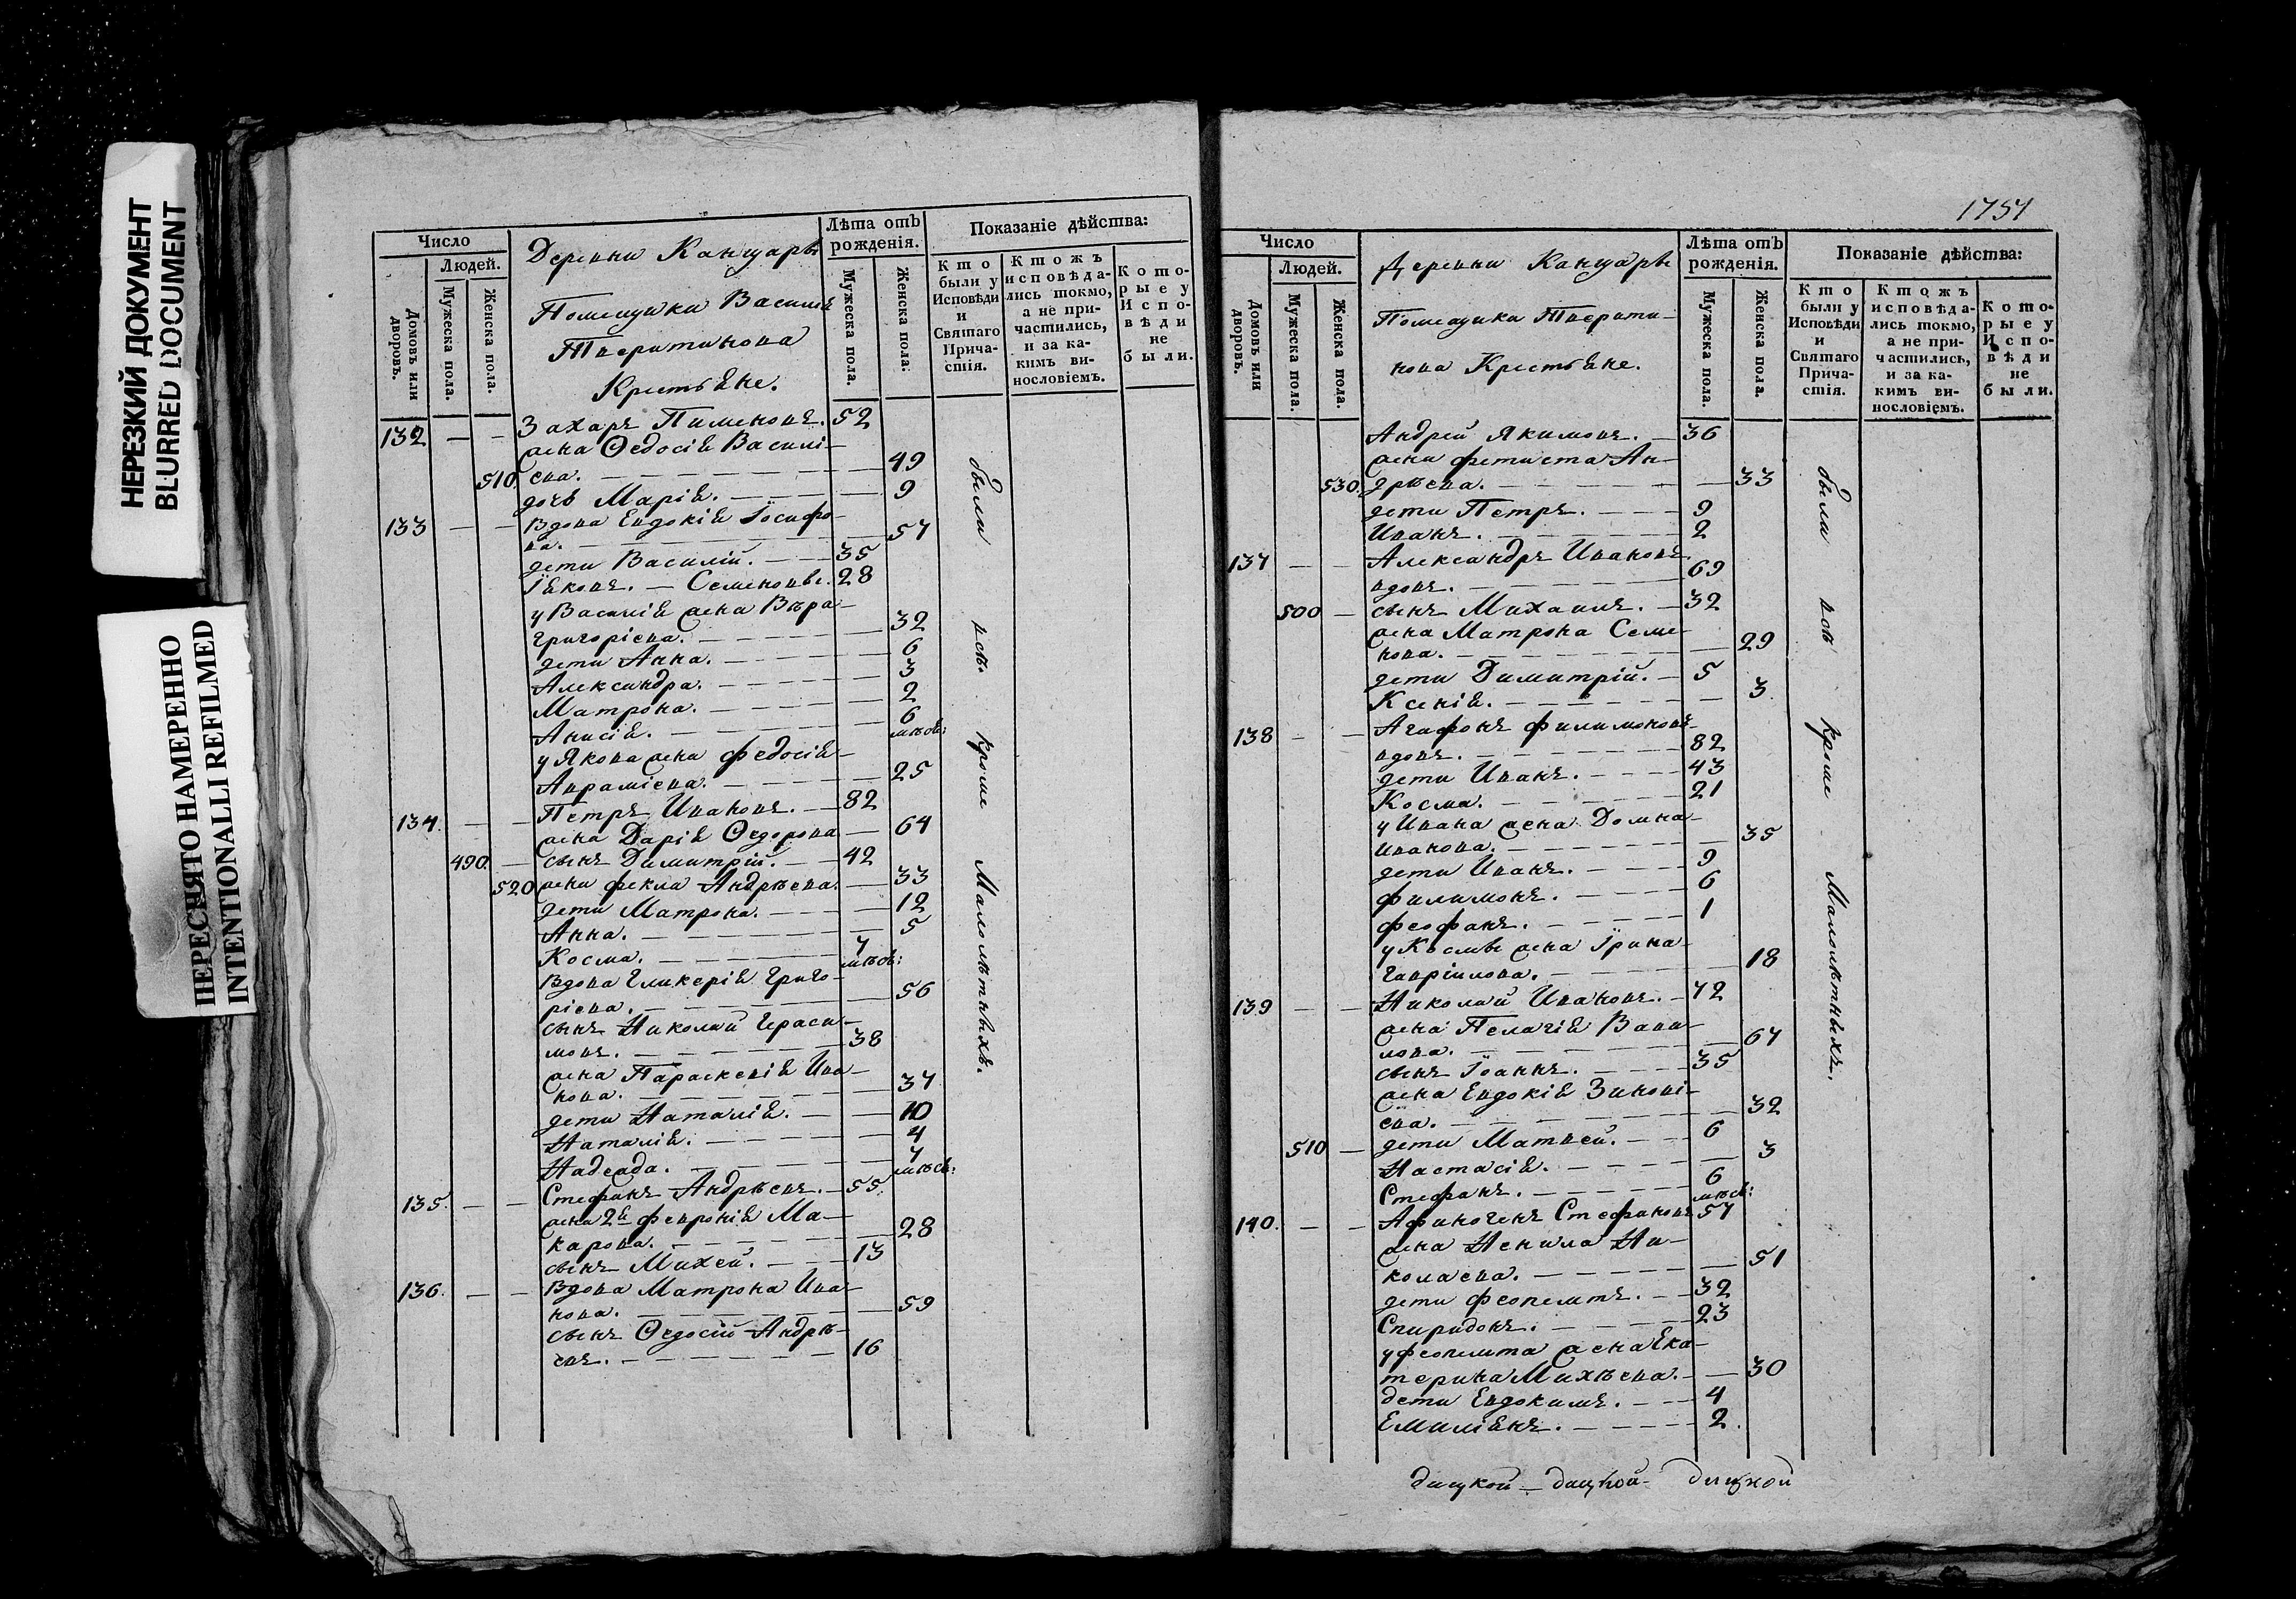 НЕРЕЗКИЙ ДОКУМЕНТ
BLURRED DOCUMENT
ПЕРЕСНЯТО НАМЕРЕННО
INTENTIONALLI REFILMED
Число
Людей.
Домовъ или дворовъ.
Мужеска пола.
Женска пола.
Деревни Канцарѣ
Помещика Василія
Тверитинова
Крестьяне.
Лѣта отъ рожденія.
Мужеска пола.
Женска пола:
Показаніе дѣйства:
Кто были у Исповѣди и Святаго Причастія.
Ктожъ исповѣдались токмо, а не причастились, и за какимъ винословіемъ.
Которые у Исповѣди не были.
132 — — Захаръ Пименовъ. 52
жена Ѳедосія Василі-
510. ева. — 49
дочь Марія. — 9
133 — — Вдова Евдокія Іосифо-
ва. — 57
дети Василій. — 35
Іяковъ. — Семеновы. 28
у Василія жена Вѣра
Григоріева. — 32
дети Анна. — 6
Александра. — 3
Матрона. — 2
Анисія. — 6 мѣсѣ:
у Якова жена Федосія
Авраміева. — 25
134. — — Петръ Ивановъ. — 82
жена Дарія Ѳедорова — 64
490. — сынъ Димитрій. — 42
520 жена Фекла Андрѣева. — 33
дети Матрона. — 12
Анна. — 5
Косма. — 7 мѣсѣ:
Вдова Гликерія Григо-
ріева. — 56
сынъ Николай Гераси-
мовъ. — 38
жена Параскевія Ива-
нова. — 37
дети Наталія. — 10
Наталія. — 4
Надежда. — 7 мѣсѣ:
135. — — Стефанъ Андрѣевъ. — 55.
жена 2я Февронія Ма-
карова. — 28
сынъ Михей. — 13
136. — — Вдова Матрона Ива-
нова. — 59
сынъ Ѳедосій Андрѣ-
евъ. — 16
были
всѣ.
кроме
Малолѣтныхъ.
1757
Число
Людей.
Домовъ или дворовъ.
Мужеска пола.
Женска пола.
Деревни Канцарѣ
Помещика Тверити-
нова Крестьяне.
Лѣта отъ рожденія.
Мужеска пола.
Женска пола.
Показаніе дѣйства:
Кто были у Исповѣди и Святаго Причастія.
Ктожъ исповѣдались токмо, а не причастились, и за какимъ винословіемъ.
Которые у Исповѣди не были.
Андрей Якимовъ. — 36
жена Фетиста Ан-
530. дрѣева. — 33
дети Петръ. — 9
Иванъ. — 2
137 — — Александръ Ивановъ
вдовъ. — 69
500 — сынъ Михаилъ. — 32
жена Матрона Семе-
нова. — 29
дети Димитрій. — 5
Ксенія. — 3
138 — — Агафонъ Филимоновъ
вдовъ. — 82
дети Иванъ. — 43
Косма. — 21
у Ивана жена Домна
Иванова. — 35
дети Иванъ. — 9
Филимонъ. — 6
Феофанъ. — 1
у Космы жена Ірина
Гавріилова. — 18
139 — — Николай Ивановъ. — 72
жена Пелагія Вави-
лова. — 67
сынъ Іоаннъ. — 35
жена Евдокія Зинові-
ева. — 32
510 — дети Матвей. — 6
Настасія. — 3
Стефанъ. — 6 мѣсѣ:
140. — — Афиногенъ Стефановъ 57
жена Ненила Ни-
колаева. — 51
дети Феопемтъ. — 32
Спиридонъ. — 23
у Феопемта жена Ека-
терина Михѣева. — 30
дети Евдокимъ. — 4
Емиліянъ. — 2.
были
всѣ
кроме
Малолѣтныхъ.